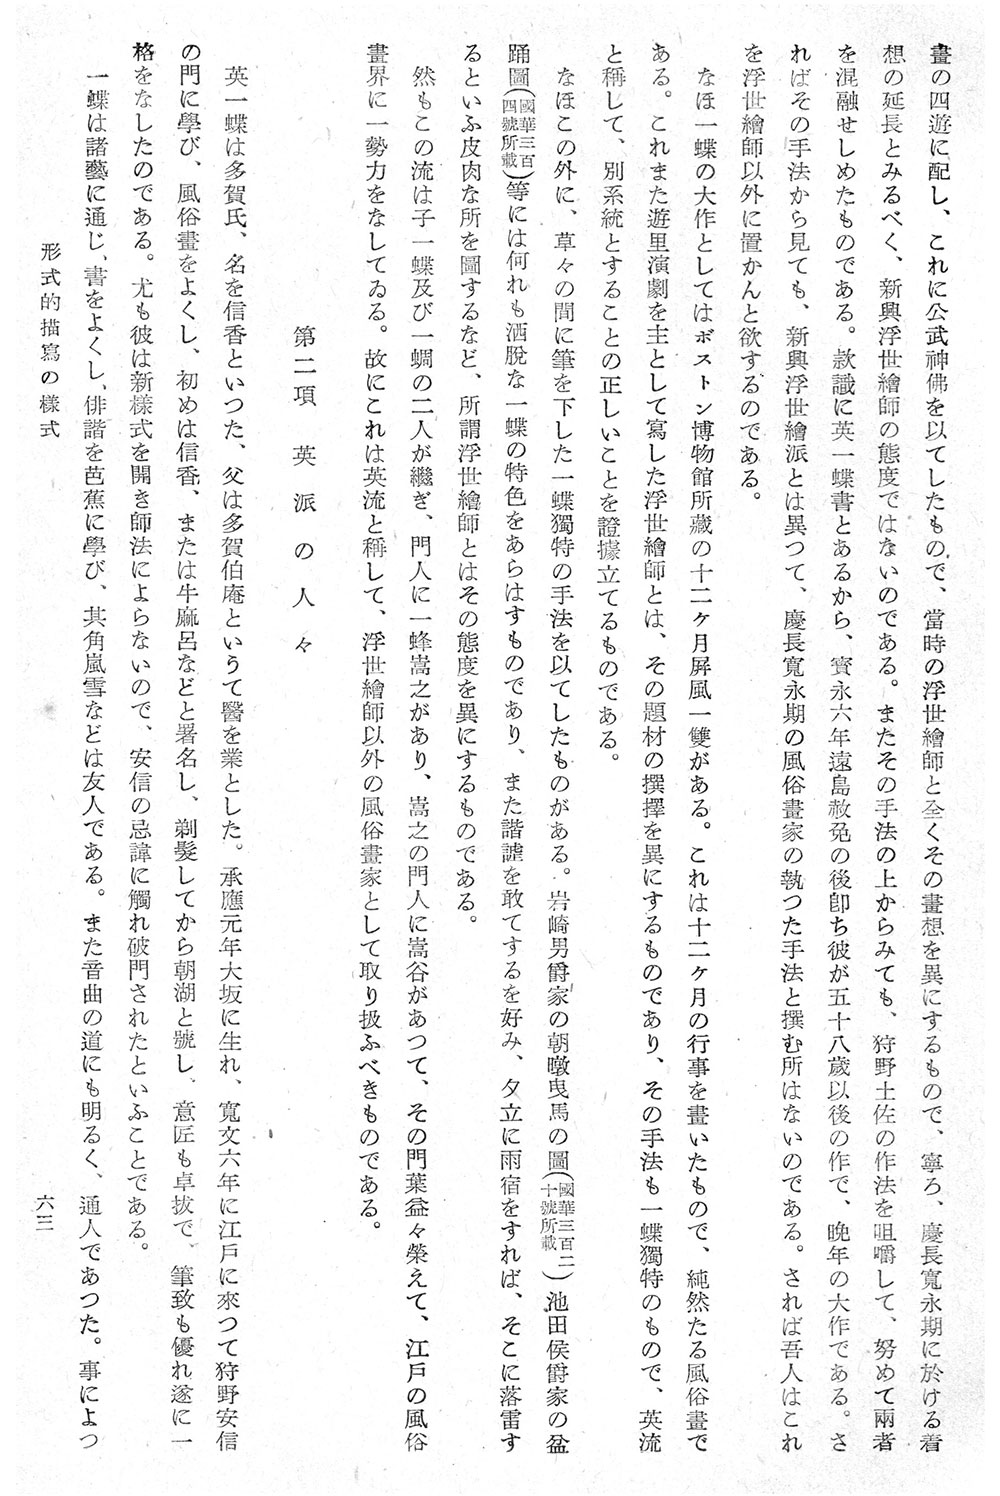 畫の四遊に配し、これに公武神佛を以てしたもので、當時の浮世繪師と全くその畫想を異にするもので、寧ろ、慶長寬永期に於ける着
想の延長とみるべく、新興浮世繪師の態度ではないのである。またその手法の上からみても、狩野土佐の作法を咀嚼して、努めて兩者
を混融せしめたものである。款識に英一蝶書とあるから、寳永六年遠島赦免の後卽ち彼が五十八歳以後の作で、晚年の大作である。さ
ればその手法から見ても、新興浮世繪派とは異つて、慶長寬永期の風俗畫家の執つた手法と撰む所はないのである。されば吾人はこれ
を浮世繪師以外に置かんと欲するのである。
なほ一蝶の大作としてはボストン博物館所藏の十二ケ月屛風一雙がある。これは十二ケ月の行事を畫いたもので、純然たる風俗畫で
ある。これまた遊里演劇を主として寫した浮世繪師とは、その題材の撰擇を異にするものであり、その手法も一蝶獨特のもので、英流
と稱して、別系統とすることの正しいことを證據立てるものである。
なほこの外に、草々の間に筆を下した一蝶獨特の手法を以てしたものがある。岩崎男爵家の朝暾曳馬の圖(國華三百二十號所載)池田侯爵家の盆
踊圖(國華三百四號所載)等には何れも洒脫な一蝶の特色をあらはすものであり、また諧謔を敢てするを好み、夕立に雨宿をすれば、そこに落雷す
るといふ皮肉な所を圖するなど、所謂浮世繪師とはその態度を異にするものである。
然もこの流は子一蝶及び一蜩の二人が繼ぎ、門人に一蜂嵩之があり、嵩之の門人に嵩谷があつて、その門葉益々榮えて、江戶の風俗
畫界に一勢力をなしてゐる。故にこれは英流と稱して、浮世繪師以外の風俗畫家として取り扱ふべきものである。
第二項 英派の人々
英一蝶は多賀氏、名を信香といつた、父は多賀伯庵というて醫を業とした。承應元年大坂に生れ、寬文六年に江戶に來つて狩野安信
の門に學び、風俗畫をよくし、初めは信香、または牛麻呂などと署名し、剃髮してから朝湖と號し、意匠も卓拔で、筆致も優れ遂に一
格をなしたのである。尤も彼は新樣式を開き師法によらないので、安信の忌諱に觸れ破門されたといふことである。
一蝶は諸藝に通じ、書をよくし、俳諧を芭蕉に學び、其角嵐雪などは友人である。また音曲の道にも明るく、通人であつた。事によつ
形式的描寫の樣式
六三